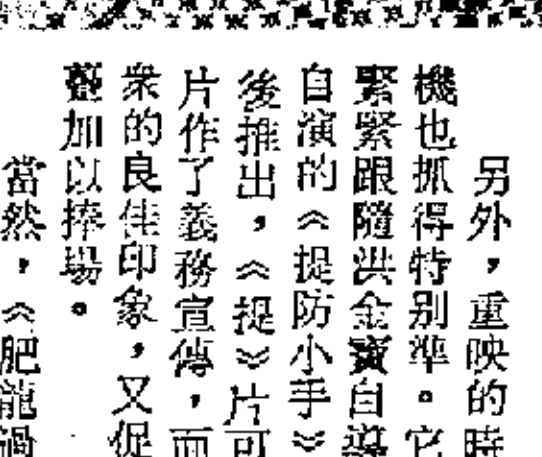 另外，重映的時
機也抓得特別準。它
緊緊跟隨洪金寶自導
自演的《提防小手》
後推出，《提》片可
片作了義務宣傳，而
衆的良佳印象，又促
加以捧場。
當然，《肥龍過